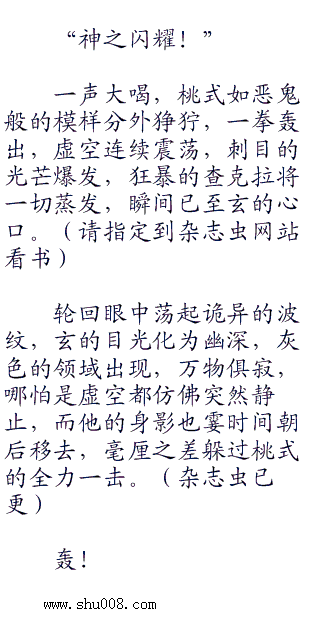 “神之闪耀！”
一声大喝，桃式如恶鬼
般的模样分外狰狞，一拳轰
出，虚空连续震荡，刺目的
光芒爆发，狂暴的查克拉将
一切蒸发，瞬间已至玄的心
口。（请指定到杂志虫网站
看书）
轮回眼中荡起诡异的波
纹，玄的目光化为幽深，灰
色的领域出现，万物俱寂，
哪怕是虚空都仿佛突然静
止，而他的身影也霎时间朝
后移去，毫厘之差躲过桃式
的全力一击。（杂志虫已
更）
轰！
www.shu008.com